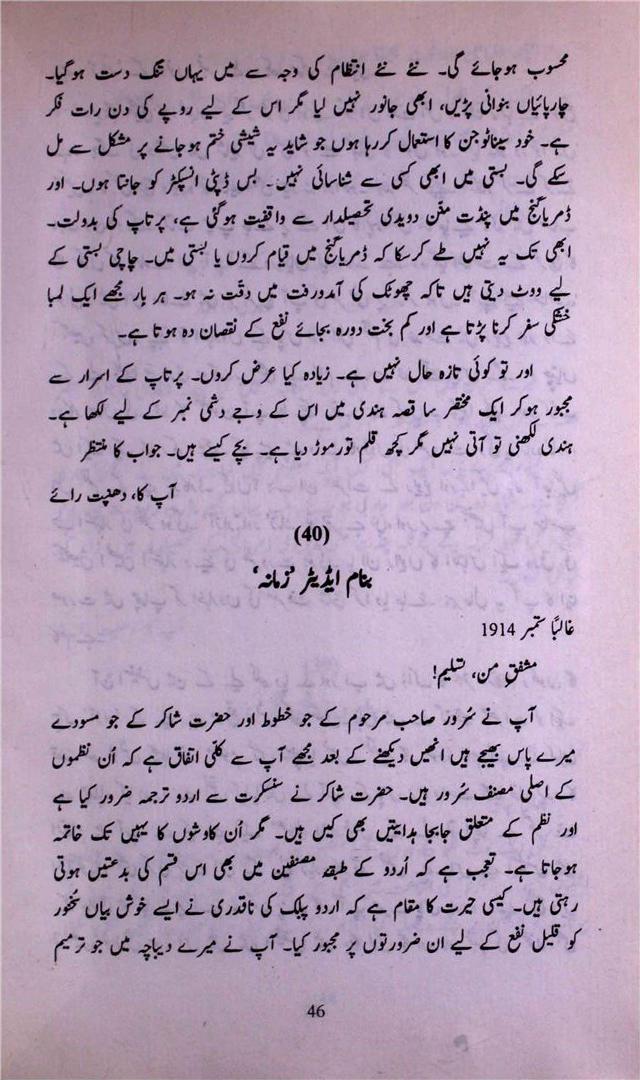 محسوب ہوجائے گی۔ نئے نئے انتظام کی وجہ سے میں یہاں تنگ دست ہوگیا۔
چارپائیاں بنوانی پڑیں، ابھی جانور نہیں لیا مگر اس کے لیے روپے کی دن رات فکر
ہے۔ خود سیناٹوجن کا استعمال کررہا ہوں جو شاید یہ شیشی ختم ہوجانے پر مشکل سے مل
سکے گی۔ بستی میں ابھی کسی سے شناسائی نہیں۔ بس ڈپٹی انسپکٹر کو جانتا ہوں۔ اور
ڈمریاگنج میں پنڈت منّن دویدی تحصیلدار سے واقفیت ہوگئی ہے، پرتاپ کی بدولت۔
ابھی تک یہ نہیں طے کرسکا کہ ڈمریاگنج میں قیام کروں یا بستی میں۔ چاچی بستی کے
لیے ووٹ دیتی ہیں تاکہ چھوٹک کی آمدورفت میں دقّت نہ ہو۔ ہر بار مجھے ایک لمبا
خشکی سفر کرنا پڑتا ہے اور کم بخت دورہ بجائے نفع کے نقصان دہ ہوتا ہے۔
اور تو کوئی تازہ حال نہیں ہے۔ زیادہ کیا عرض کروں۔ پرتاپ کے اسرار سے
مجبور ہوکر ایک مختصر سا قصہ ہندی میں اس کے وجے دشمی نمبر کے لیے لکھا ہے۔
ہندی لکھنی تو آتی نہیں مگر کچھ قلم تورموڑ دیا ہے۔ بچے کیسے ہیں۔ جواب کا منتظر
آپ کا، دھنپت رائے
(40)
بنام ایڈیٹر ’زمانہ‘
غالباً ستمبر 1914
مشفقِ من، تسلیم!
آپ نے سُرور صاحب مرحوم کے جو خطوط اور حضرت شاکر کے جو مسودے
میرے پاس بھیجے ہیں انھیں دیکھنے کے بعد مجھے آپ سے کلّی اتفاق ہے کہ اُن نظموں
کے اصلی مصنف سُرور ہیں۔ حضرت شاکر نے سنسکرت سے اردو ترجمہ ضرور کیا ہے
اور نظم کے متعلق جابجا ہدایتیں بھی کیں ہیں۔ مگر اُن کاوشوں کا یہیں تک خاتمہ
ہوجاتا ہے۔ تعجب ہے کہ اُردو کے طبقہ مصنفین میں بھی اس قسم کی بدعتیں ہوتی
رہتی ہیں۔ کیسی حیرت کا مقام ہے کہ اردو پبلک کی ناقدری نے ایسے خوش بیاں سخُور
کو قلیل نفع کے لیے ان ضرورتوں پر مجبور کیا۔ آپ نے میرے دیباچہ میں جو ترمیم
46